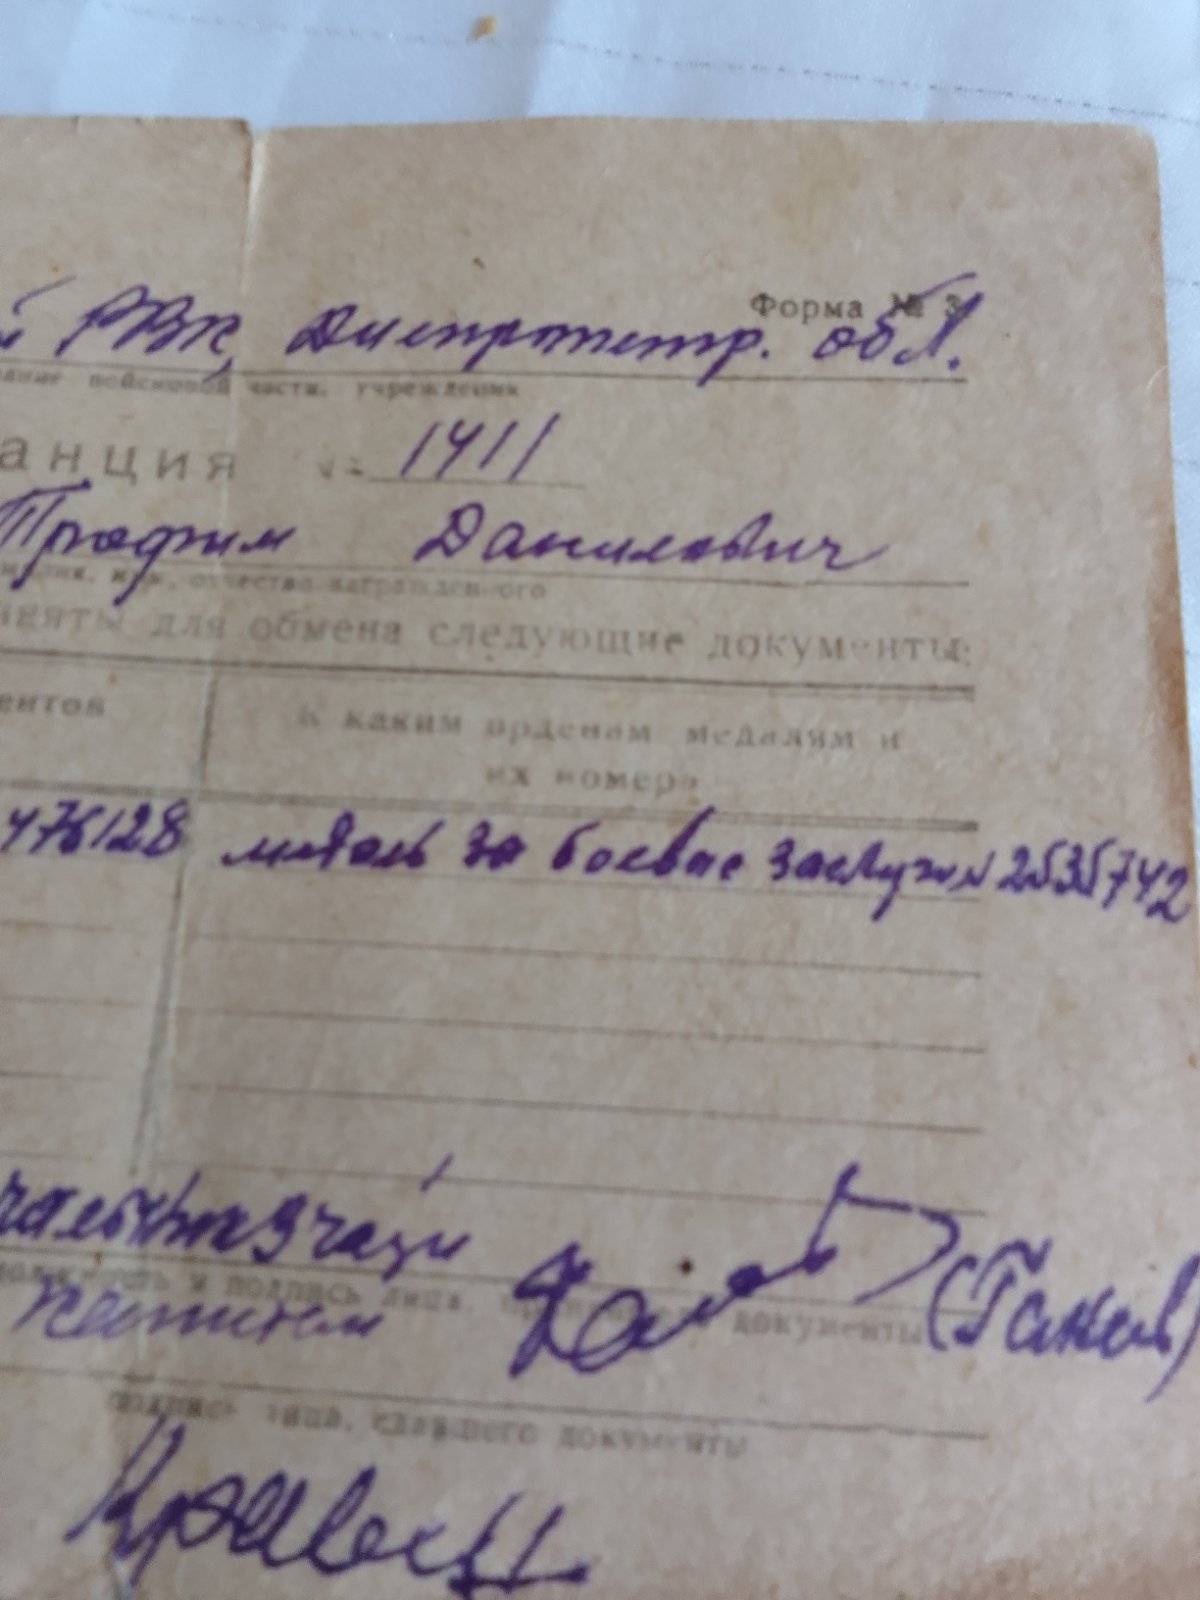 Форма № 3
й РВК, Днепропетр. обл.
ание войсковой части, учреждения
анция № 1411
Трофим Данилович
милия, имя, отчество награжденного
иняты для обмена следующие документы:
ентов
К каким орденам медалям и
их номера
476128 медаль за боевые заслуги № 2535742
чальник 3 части
должность и подпись лица, принявшего документы
капитан (Ганов)
подпись лица, сдавшего документы
Кравец